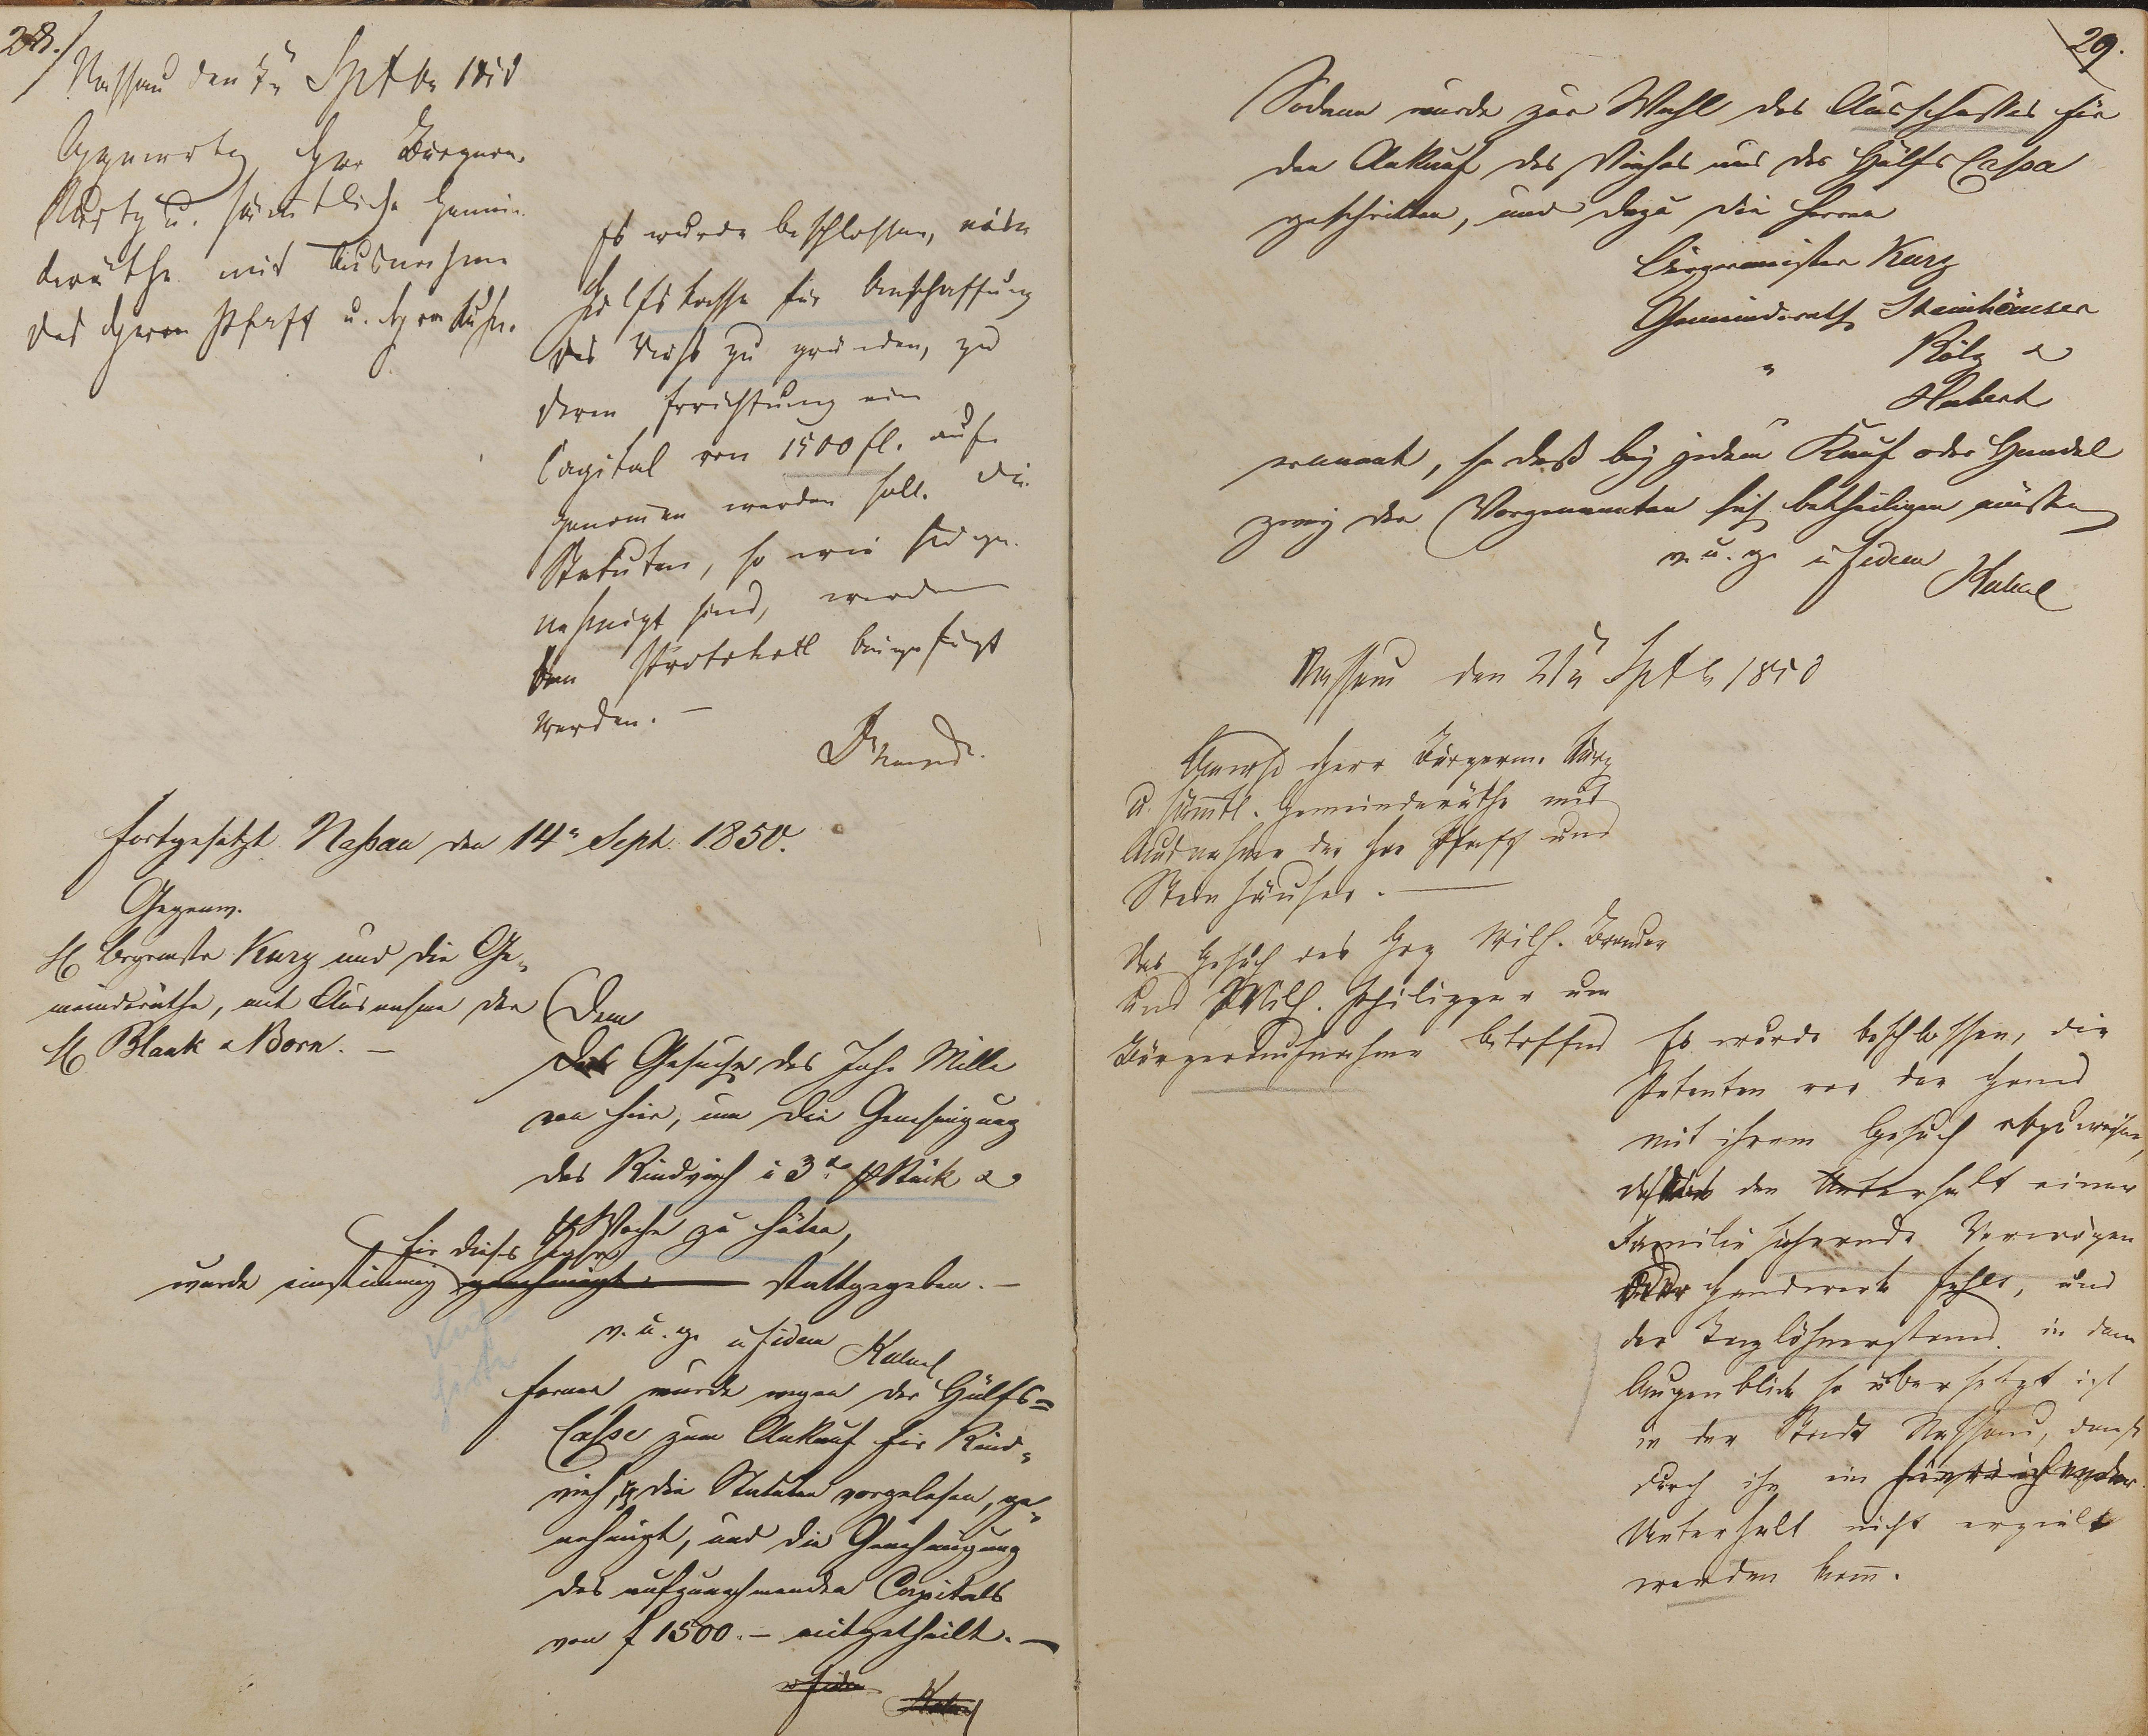 28.
Nassau den 7n Sptbr 1850
Gegenwärtig Herr Bürgerm.
Kurtz u. sämtliche Gemein-
deräthe mit Ausnahme
des Herrn Pfaff u. Herrn Kuhn.
Es wurde beschlossen, eine
Hülfskasse für Anschaffung
des Viehs zu gründen, zu
deren Errichtung ein
Capital von 1500 fl. auf-
genommen werden soll. Die
Statuten, so wie sie ge-
nehmigt sind, werden
dem Protokoll beigefügt
werden. —
fortgesetzt Naßau den 14n Sept. 1850.
Gegenw.
H Brgrmstr Kurz und die Ge-
meinderäthe, mit Ausnahme der
H Blank & Born. —
Dem
Gesuche des Joh. Mille
von hier, um die Genehmigung
das Rindvieh à 3 x p Stück &
p Woche zu hüten,
für dieses Jahr
wurde einstimmig genehmigt stattgegeben. —
v. u. g. u fidem
ferner wurde wegen der Hülfs-
Casse zum Ankauf für Rind-
vieh, die Statuten vorgelesen, ge-
nehmigt, und die Genehmigung
des aufzunehmenden Capitals
von f 1500. — mitgetheilt. —
u fidem
29.
Sodann wurde zur Wahl des Ausschußes für
den Ankauf des Viehes aus der Hülfs Casse
geschritten, und dazu die Herren
Bürgermeister Kurz
Gemeinderath Steinhäuser
" Kölz &
"
ernannt, so daß bey jedem Kauf oder Handel
zwey der Vorgenannten sich betheiligen müßen
v. u. g. u fidem
Nassau den 21n Sptbr 1850
Anwsd Herr Bürgerm. Kurz
u. sämtl. Gemeinderäthe mit
Ausnahme der Hrr Pfaff und
Steinhäuser. —
Das Gesuch des Grg Wilh. Bruder
und Wilh. Philippar um
Bürgeraufnahme betreffend
Es wurde beschlossen, die
Petenten vor der Hand
mit ihrem Gesuch abzuweisen,
da den Unterhalt einer
Familie sichernde Vermögen
oder Handwerk fehlt, und
der Taglöhnerstand in dem
Augenblick so übersetzt ist
in der Stadt Nassau, daß
durch ihn ein hinreichender
Unterhalt nicht erzielt
werden kann.